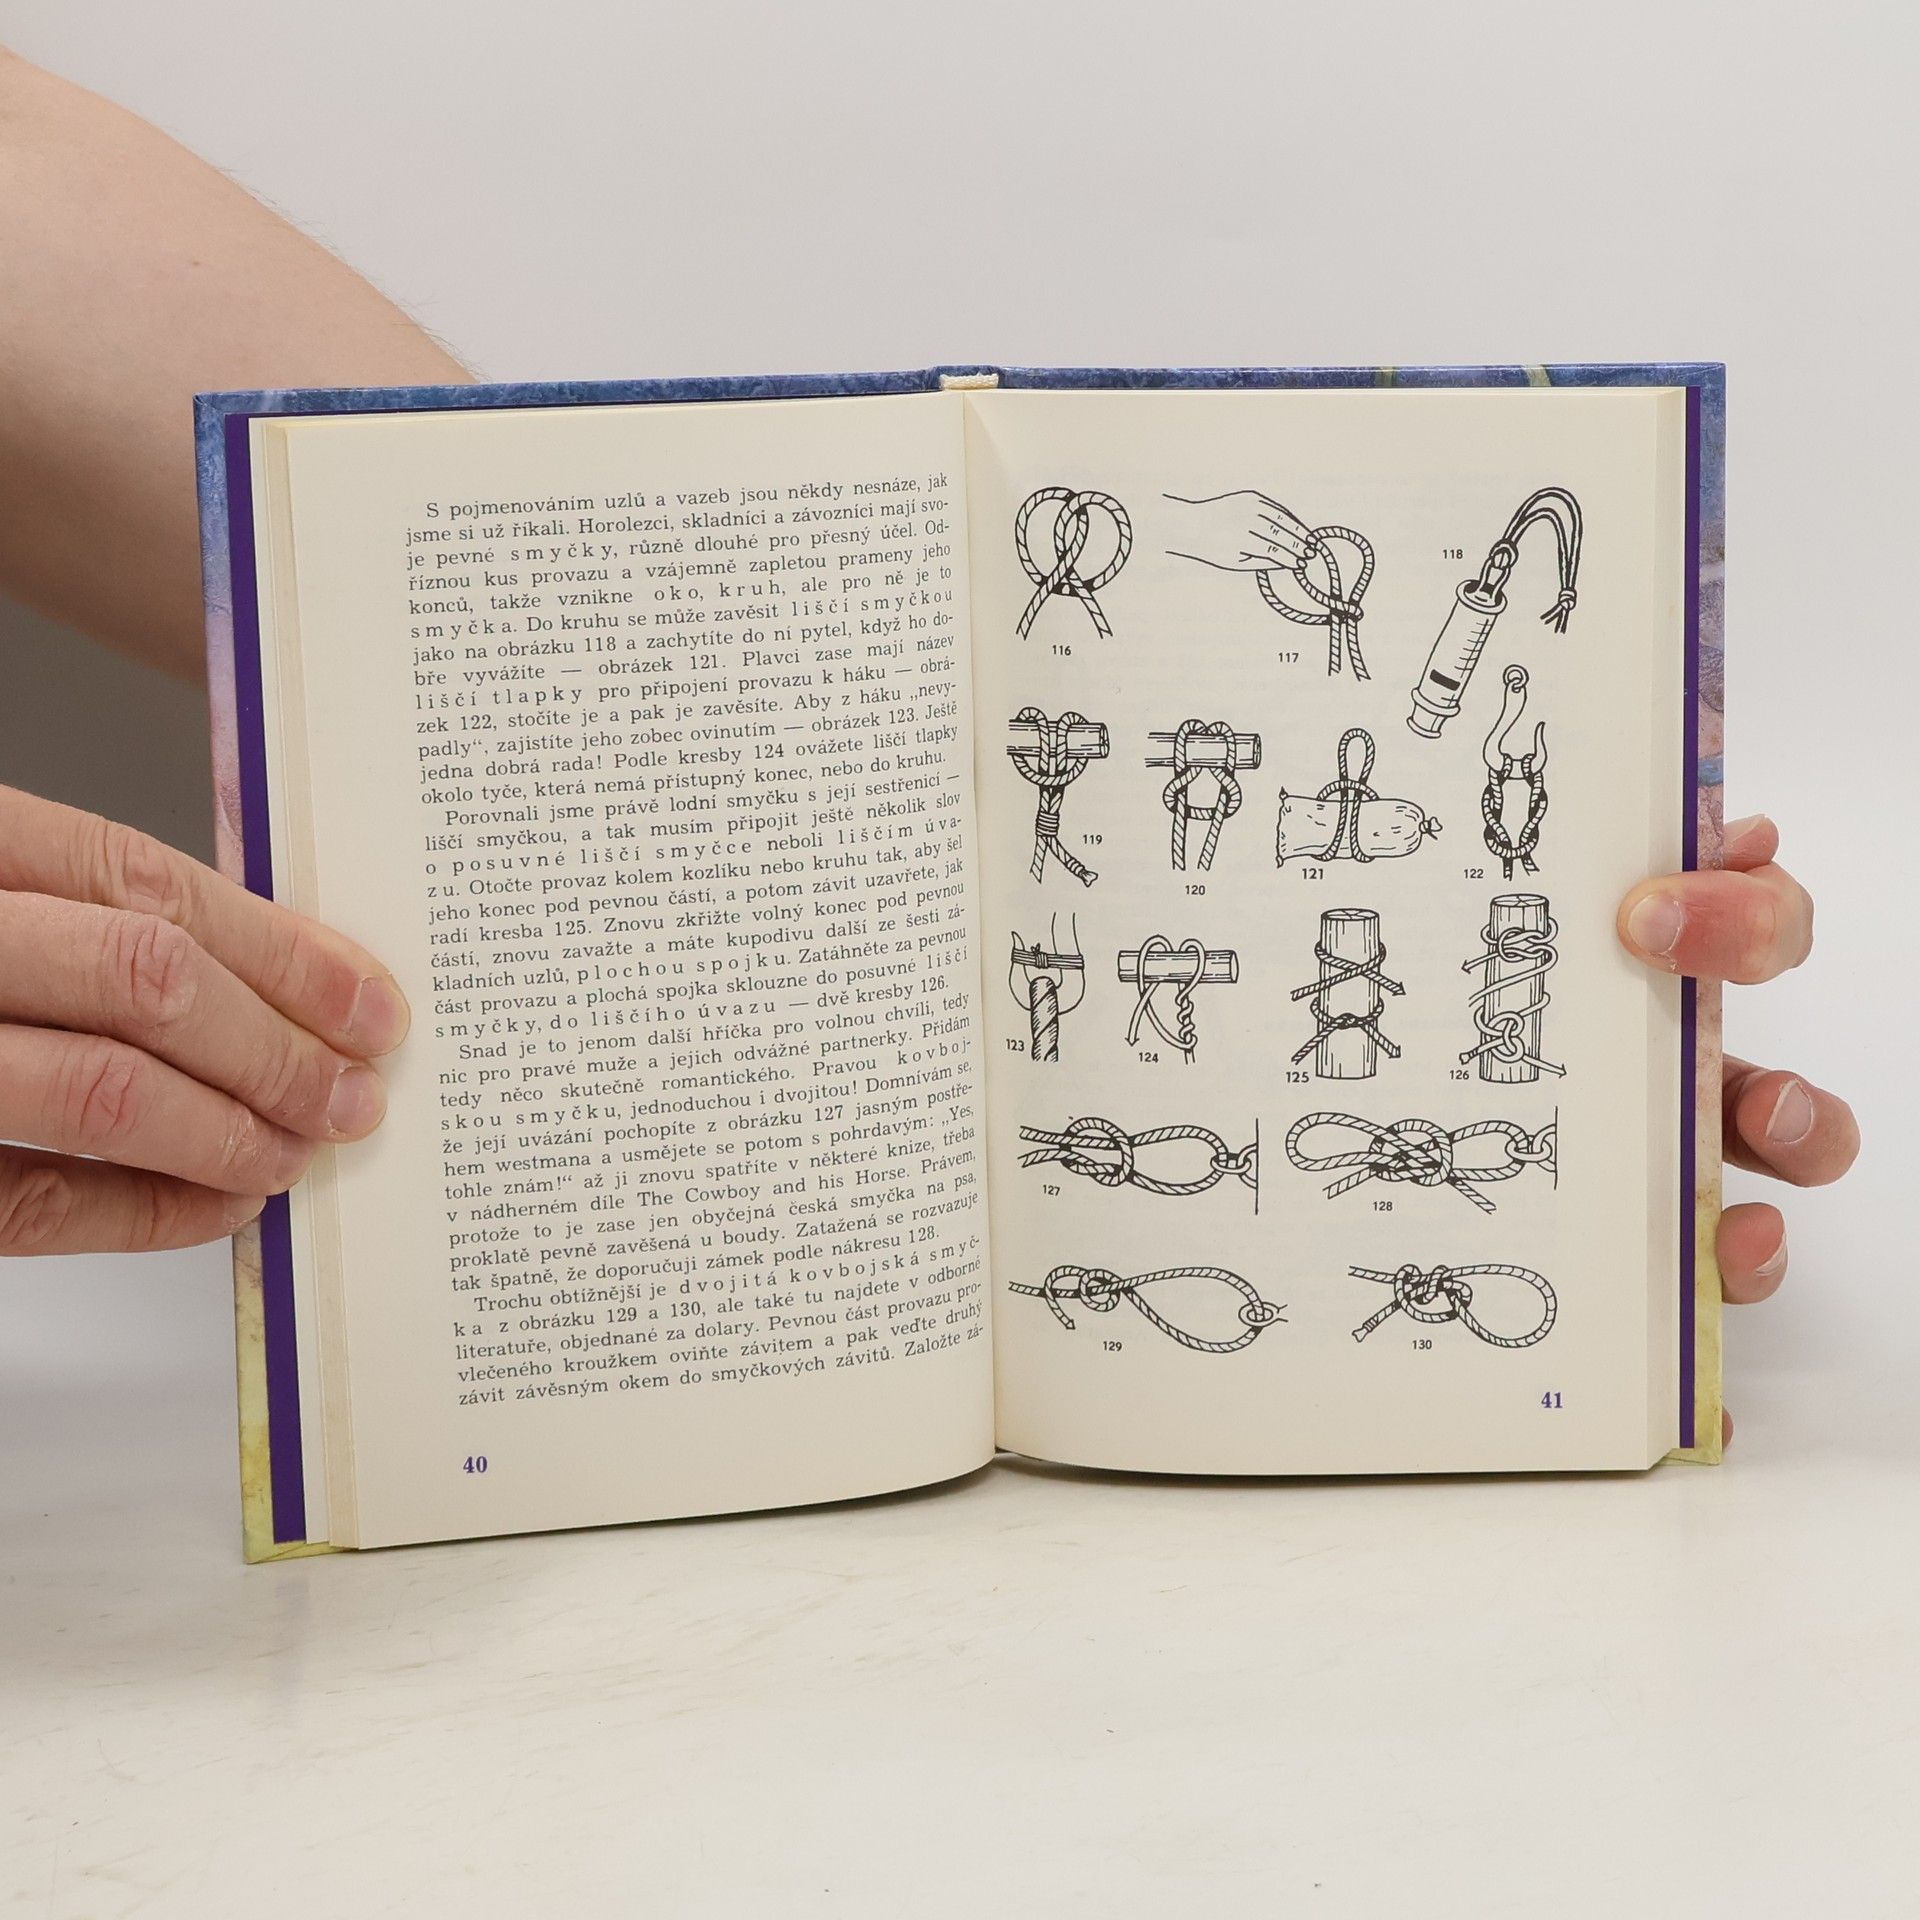 S pojmenováním uzlů a vazeb jsou někdy nesnáze, jak
jsme si už říkali. Horolezci, skladníci a závozníci mají svo-
je pevné smyčky, různě dlouhé pro přesný účel. Od-
říznou kus provazu a vzájemně zapletou prameny jeho
konců, takže vznikne oko, kruh, ale pro ně je to
smyčka. Do kruhu se může zavěsit liščí smyčkou
jako na obrázku 118 a zachytíte do ní pytel, když ho do-
bře vyvážíte — obrázek 121. Plavci zase mají název
liščí tlapky pro připojení provazu k háku — obrá-
zek 122, stočíte je a pak je zavěsíte. Aby z háku „nevy-
padly“, zajistíte jeho zobec ovinutím — obrázek 123. Ještě
jedna dobrá rada! Podle kresby 124 ovážete liščí tlapky
okolo tyče, která nemá přístupný konec, nebo do kruhu.
Porovnali jsme právě lodní smyčku s její sestřenicí —
liščí smyčkou, a tak musím připojit ještě několik slov
o posuvné liščí smyčce neboli liščím úva-
zu. Otočte provaz kolem kozlíku nebo kruhu tak, aby šel
jeho konec pod pevnou částí, a potom závit uzavřete, jak
radí kresba 125. Znovu zkřižte volný konec pod pevnou
částí, znovu zavažte a máte kupodivu další ze šesti zá-
kladních uzlů, plochou spojku. Zatáhněte za pevnou
část provazu a plochá spojka sklouzne do posuvné liščí
smyčky, do liščího úvazu — dvě kresby 126.
Snad je to jenom další hříčka pro volnou chvíli, tedy
nic pro pravé muže a jejich odvážné partnerky. Přidám
tedy něco skutečně romantického. Pravou kovboj-
skou smyčku, jednoduchou i dvojitou! Domnívám se,
že její uvázání pochopíte z obrázku 127 jasným postře-
hem westmana a usmějete se potom s pohrdavým: „Yes,
tohle znám!“ až ji znovu spatříte v některé knize, třeba
v nádherném díle The Cowboy and his Horse. Právem,
protože to je zase jen obyčejná česká smyčka na psa,
proklatě pevně zavěšená u boudy. Zatažená se rozvazuje
tak špatně, že doporučuji zámek podle nákresu 128.
Trochu obtížnější je dvojitá kovbojská smyč-
ka z obrázku 129 a 130, ale také tu najdete v odborné
literatuře, objednané za dolary. Pevnou část provazu pro-
vlečeného kroužkem oviňte závitem a pak veďte druhý
závit závěsným okem do smyčkových závitů. Založte zá-
40
116
117
118
119
120
121
122
123
124
125
126
127
128
129
130
41